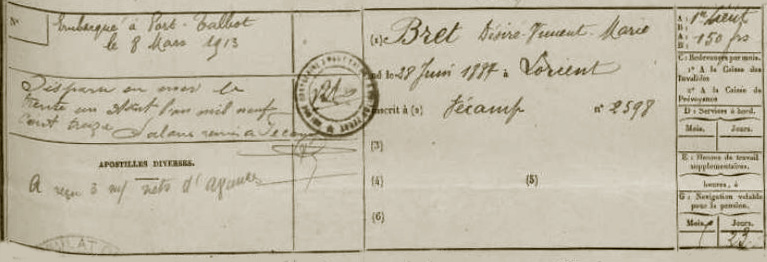 N°
Embarqué à Port-Talbot
le 8 Mars 1913
Disparu en mer le
trente un Août mil neuf
cent treize
APOSTILLES DIVERSES.
A reçu 3 m/ nets d'avances
(1) Bret Désiré-Vincent-Marie
né le 28 Juin 1887 à Lorient
inscrit à (2) Fécamp n° 2598
(3)
(4) (5)
(6)
A: 1er Lieut
B:
A: 150 frs
B:
C: Redevances par mois.
1° A la Caisse des
Invalides
2° A la Caisse de
Prévoyance
D: Services à bord.
Mois. Jours.
E: Heures de travail
supplémentaires.
heures, à
G: Navigation valable
pour la pension.
Mois. Jours.
23